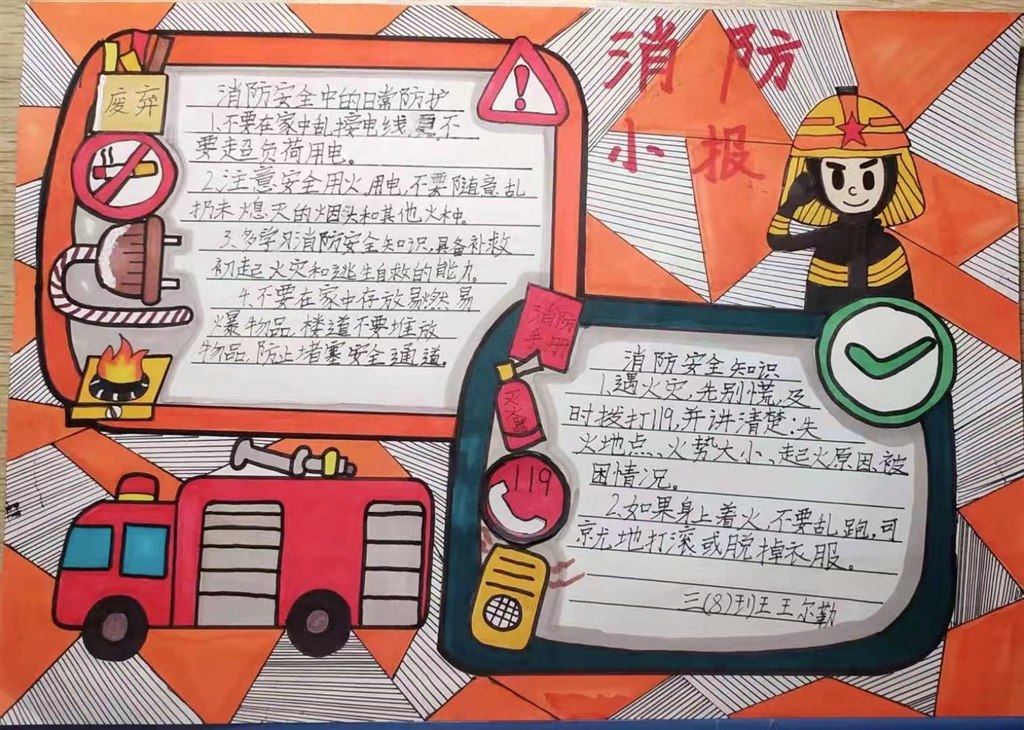 消防
小报
废弃
消防安全中的日常防护
1.不要在家中乱接电线,更不
要超负荷用电。
2.注意安全用火用电,不要随意乱
扔未熄灭的烟头和其他火种。
3.多学习消防安全知识,具备补救
初起火灾和逃生自救的能力
4.不要在家中存放易燃易
爆物品,楼道不要堆放
物品,防止堵塞安全通道。
消防
手册
灭火器
119
消防安全知识
1.遇火灾,先别慌,及
时拨打119,并讲清楚:失
火地点、火势大小、起火原因、被
困情况。
2.如果身上着火,不要乱跑,可
就地打滚或脱掉衣服。
三(8)班王尔勤